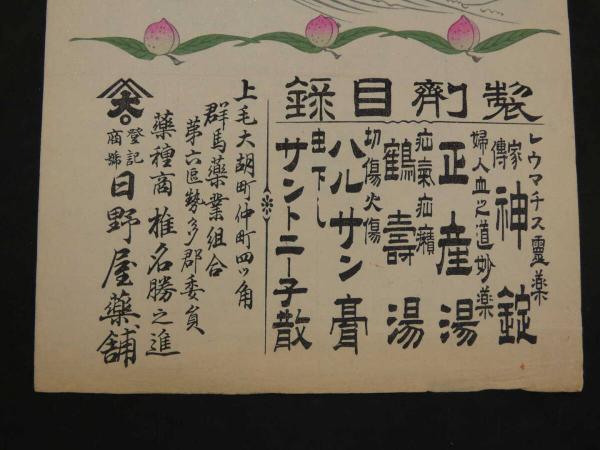 製劑目錄
レウマチス靈藥
家傳 神錠
婦人血之道妙藥
正産湯
疝氣疝癪
鶴壽湯
切傷火傷
ハルサン膏
虫下し
サントニー子散
上毛大胡町仲町四ツ角
群馬藥業組合
第六區勢多郡委員
藥種商 椎名勝之進
大
登記商號 日野屋藥舗